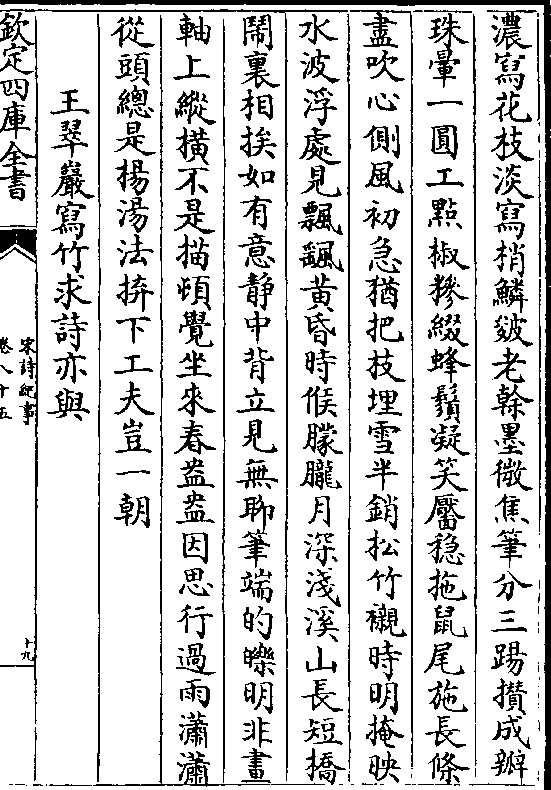 濃寫花枝淡寫梢鱗皴老榦墨微焦筆分三踢攢成瓣
珠暈一圓工點椒糝綴蜂鬚凝笑靨穏拖鼠尾施長條
盡吹心側風初急猶把枝埋雪半銷松竹襯時明掩映
水波浮處見飄颻黄昏時𠉀朦朧月深淺溪山長短橋
鬧裏相挨如有意静中背立見無聊筆端的皪明非畫
軸上縱横不是描頓覺坐來春盎盎因思行過雨瀟瀟
從頭總是揚湯法拚下工夫豈一朝
王翠巖寫竹求詩亦與
欽定四庫全書
宋詩紀事
卷八十五
十九